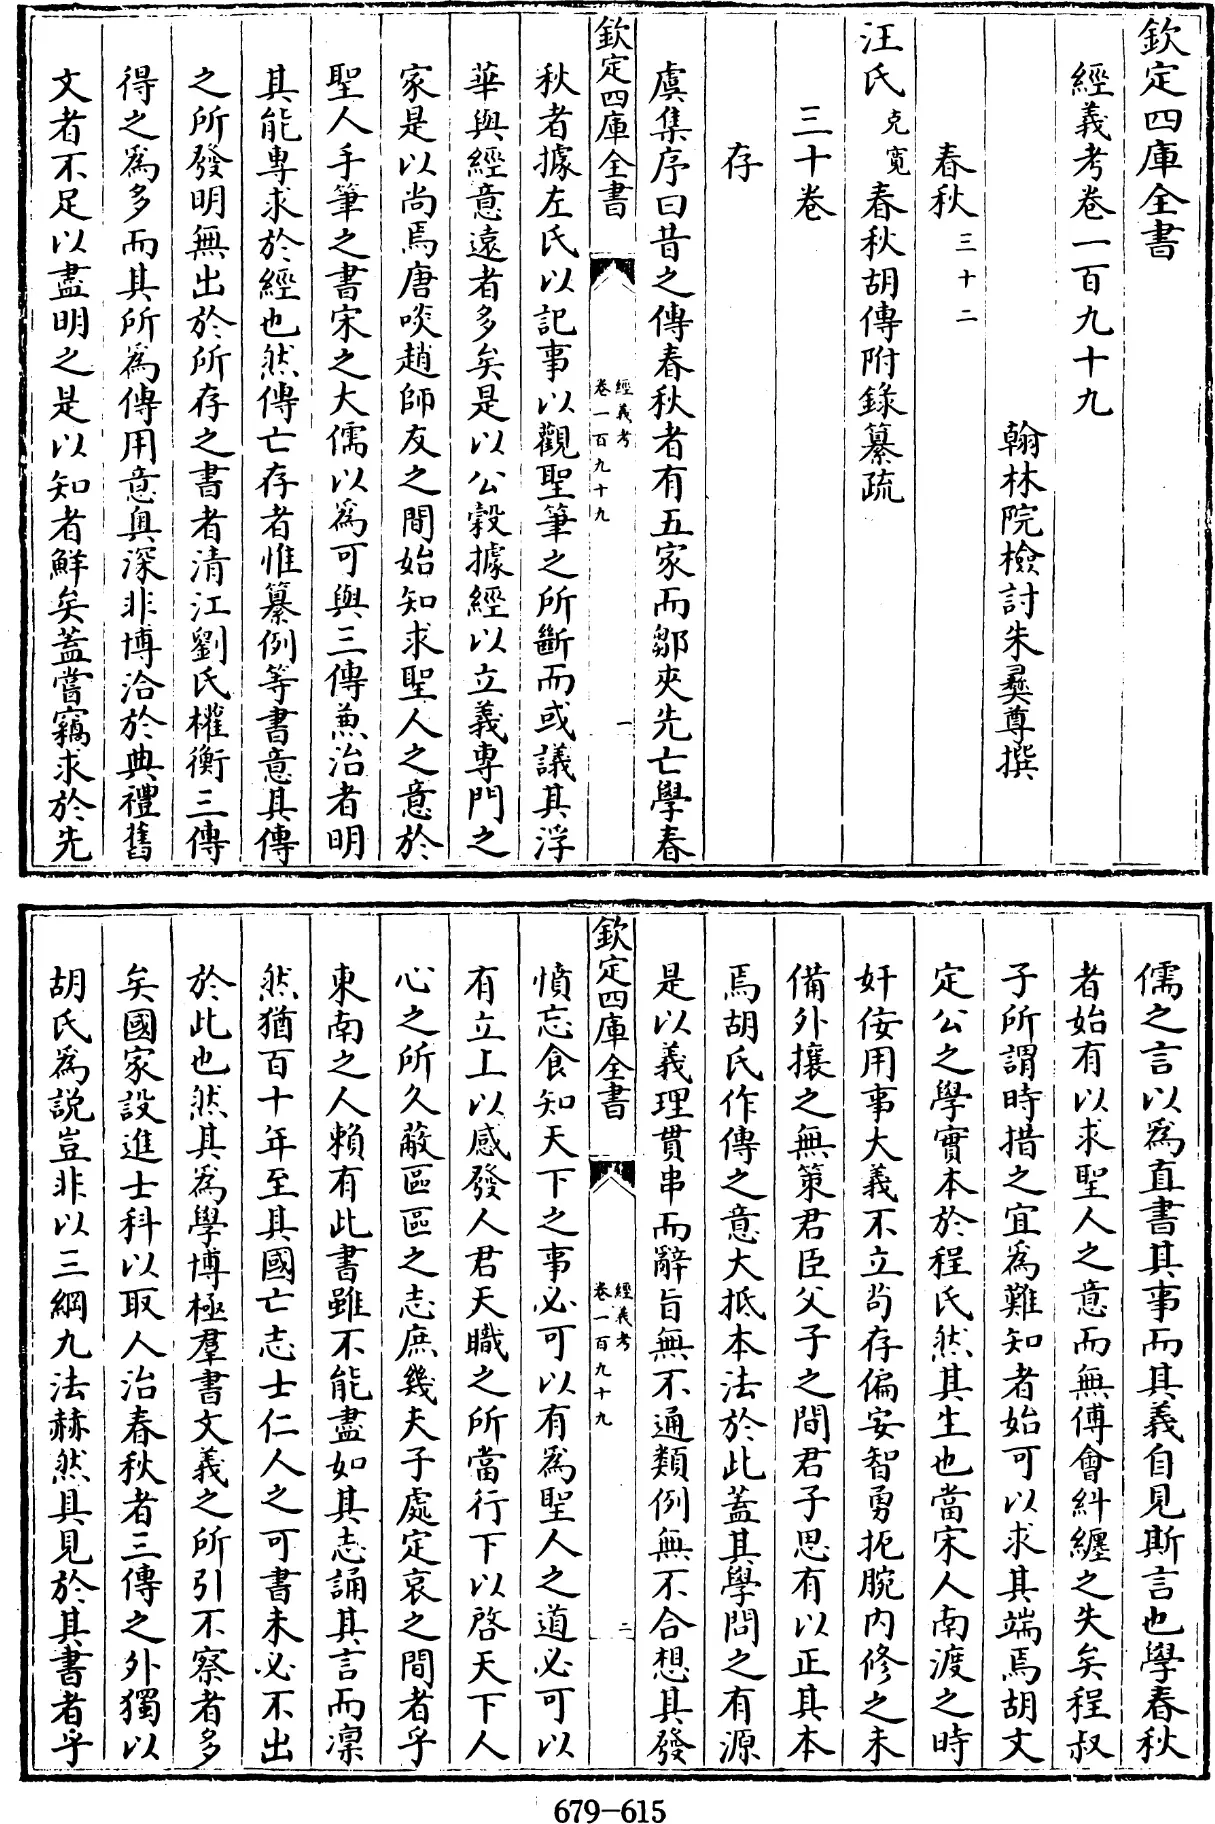 欽定四庫全書
經義考卷一百九十九
翰林院檢討朱彝尊撰
春秋三十二
汪氏克寬春秋胡傳附錄纂疏
三十卷
存
虞集序曰昔之傳春秋者有五家而鄒夾先亡學春
欽定四庫全書
經義考
卷一百九十九
一
秋者據左氏以記事以觀聖筆之所斷而或議其浮
華與經意遠者多矣是以公穀據經以立義專門之
家是以尚焉唐啖趙師友之間始知求聖人之意於
聖人手筆之書宋之大儒以為可與三傳兼治者明
其能專求於經也然傳亡存者惟纂例等書意其傳
之所發明無出於所存之書者清江劉氏權衡三傳
得之為多而其所為傳用意奥深非博洽於典禮舊
文者不足以盡明之是以知者鮮矣蓋嘗竊求於先
儒之言以為直書其事而其義自見斯言也學春秋
者始有以求聖人之意而無傅會糾纒之失矣程叔
子所謂時措之宜為難知者始可以求其端焉胡文
定公之學實本於程氏然其生也當宋人南渡之時
奸佞用事大義不立茍存偏安智勇扼腕内修之未
備外攘之無策君臣父子之間君子思有以正其本
焉胡氏作傳之意大抵本法於此蓋其學問之有源
是以義理貫串而辭旨無不通類例無不合想其發
欽定四庫全書
經義考
卷一百九十九
二
憤忘食知天下之事必可以有為聖人之道必可以
有立上以感發人君天職之所當行下以啓天下人
心之所久蔽區區之志庶幾夫子處定哀之間者乎
東南之人賴有此書雖不能盡如其志誦其言而凜
然猶百十年至其國亡志士仁人之可書未必不出
於此也然其為學博極羣書文義之所引不察者多
矣國家設進士科以取人治春秋者三傳之外獨以
胡氏為説豈非以三綱九法赫然具見於其書者乎
679-615